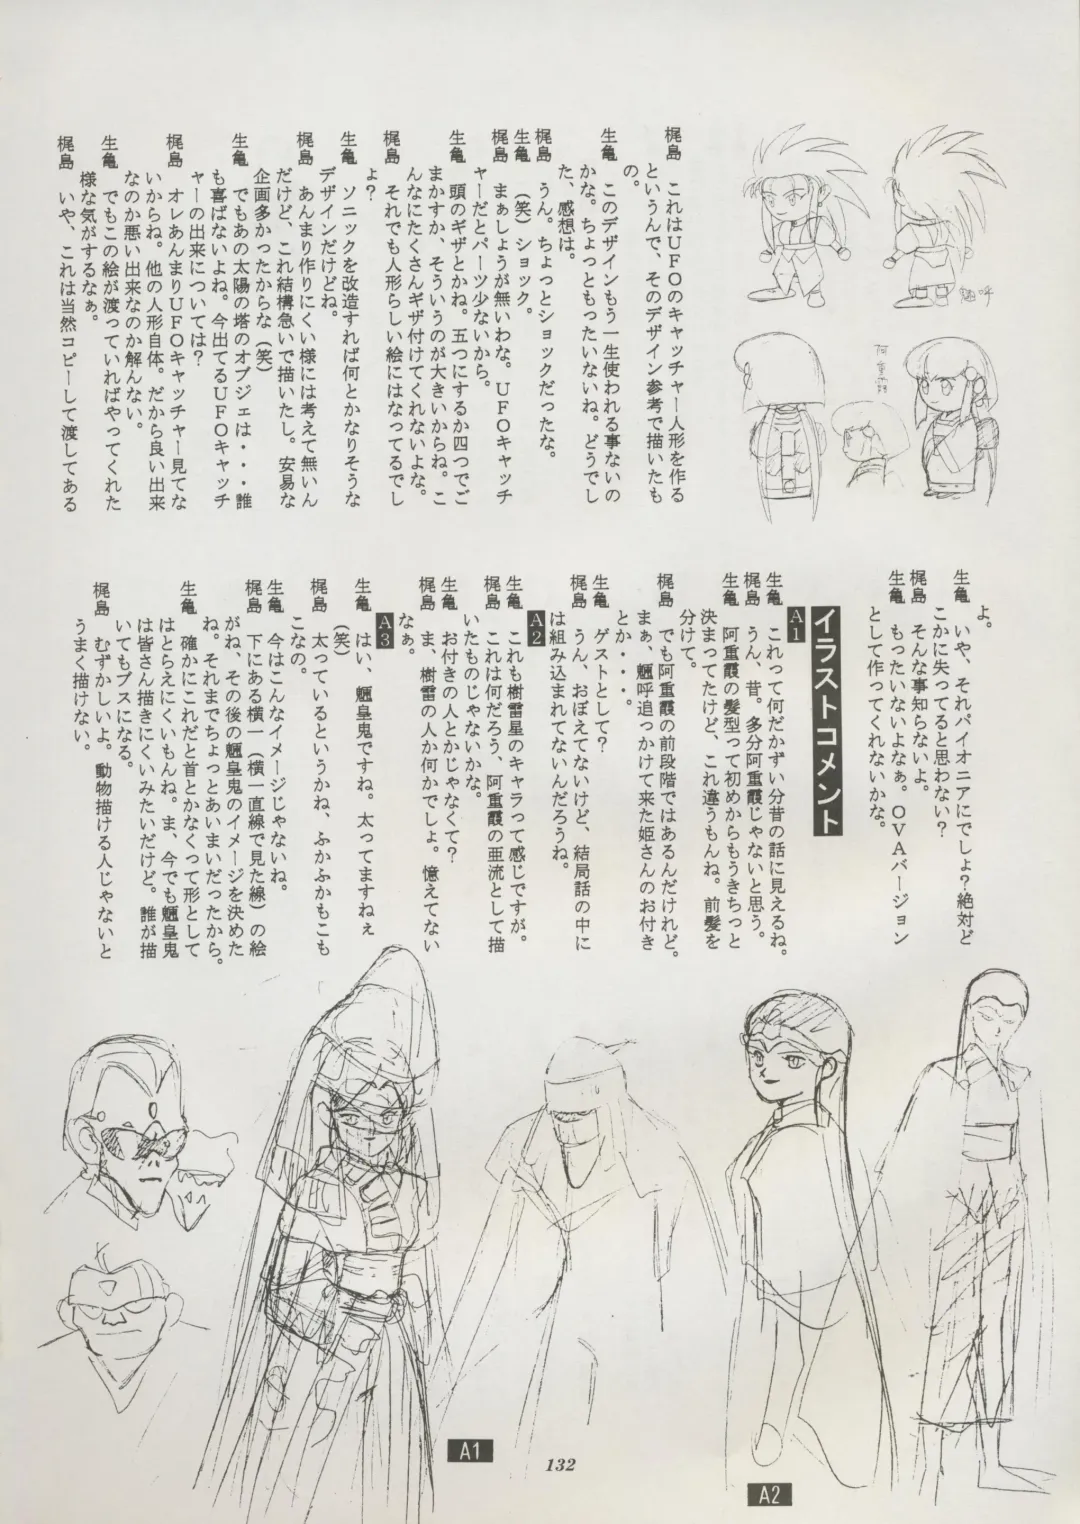 梶島　これはUFOのキャッチャー人形を作る
というんで、そのデザイン参考で描いたも
の。
生亀　このデザインもう一生使われる事ないの
かな。ちょっともったいないね。どうでし
た、感想は。
梶島　うん。ちょっとショックだったな。
生亀　(笑)ショック。
梶島　まぁしょうが無いわな。UFOキャッチ
ャーだとパーツ少ないから。
生亀　頭のギザとかね。五つにするか四つでご
まかすか、そういうのが大きいからね。こ
んなにたくさんギザ付けてくれないよな。
梶島　それでも人形らしい絵にはなってるでし
ょ?
生亀　ソニックを改造すれば何とかなりそうな
デザインだけどね。
梶島　あんまり作りにくい様には考えて無いん
だけど、これ結構急いで描いたし。安易な
企画多かったからな(笑)
生亀　でもあの太陽の塔のオブジェは・・・誰
も喜ばないよね。今出てるUFOキャッチ
ャーの出来については?
梶島　オレあんまりUFOキャッチャー見てな
いからね。他の人形自体。だから良い出来
なのか悪い出来なのか解んない。
生亀　でもこの絵が渡っていればやってくれた
様な気がするなぁ。
梶島　いや、これは当然コピーして渡してある
よ。
生亀　いや、それパイオニアにでしょ?絶対ど
こかに失ってると思わない?
梶島　そんな事知らないよ。
生亀　もったいないよなぁ。OVAバージョン
として作ってくれないかな。
イラストコメント
A1
生亀　これって何だかずい分昔の話に見えるね。
梶島　うん、昔。多分阿重霞じゃないと思う。
生亀　阿重霞の髪型って初めからもうきちっと
決まってたけど、これ違うもんね。前髪を
分けて。
梶島　でも阿重霞の前段階ではあるんだけれど。
まぁ、魎呼追っかけて来た姫さんのお付き
とか・・・。
生亀　ゲストとして?
梶島　うん、おぼえてないけど、結局話の中に
は組み込まれてないんだろうね。
A2
生亀　これも樹雷星のキャラって感じですが。
梶島　これは何だろう、阿重霞の亜流として描
いたものじゃないかな。
生亀　お付きの人とかじゃなくて?
梶島　ま、樹雷の人か何かでしょ。憶えてない
なぁ。
A3
生亀　はい、魎皇鬼ですね。太ってますねぇ
(笑)
梶島　太っているというかね、ふかふかもこも
こなの。
生亀　今はこんなイメージじゃないね。
梶島　下にある横一(横一直線で見た線)の絵
がね、その後の魎皇鬼のイメージを決めた
ね。それまでちょっとあいまいだったから。
生亀　確かにこれだと首とかなくって形として
はとらえにくいもんね。ま、今でも魎皇鬼
は皆さん描きにくいみたいだけど。誰が描
いてもブスになる。
梶島　むずかしいよ。動物描ける人じゃないと
うまく描けない。
魎呼
阿重霞
A1
132
A2